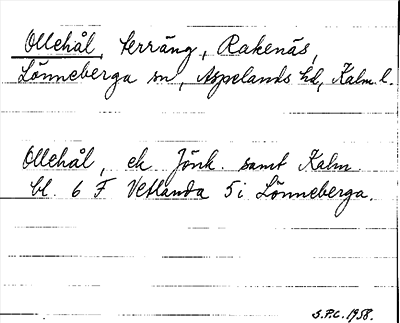 Ollehål, terräng, Rakenäs,
Lönneberga sn, Aspelands hd, Kalm. l.
Ollehål, ek Jönk. samt Kalm.
bl. 6 F Vetlanda 5i Lönneberga.
S.P.C. 1958.